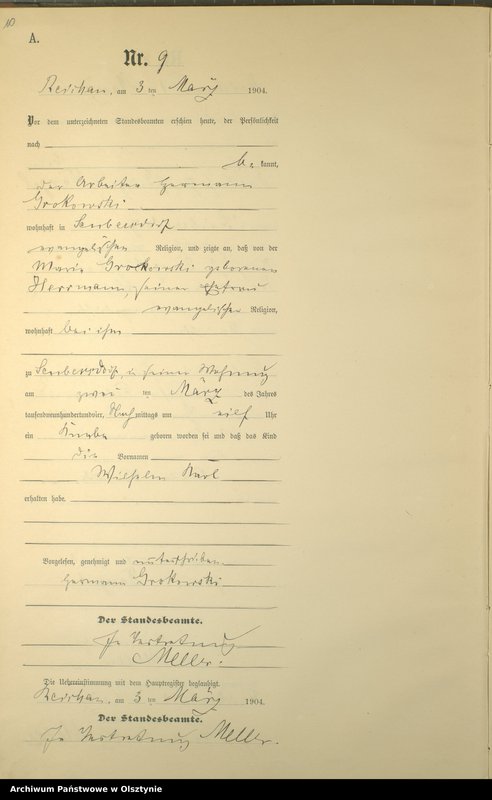 10
A.
Nr. 9
am 3 ten März 1904.
Vor dem unterzeichneten Standesbeamten erschien heute, der Persönlichkeit
nach
be kannt,
der Arbeiter Hermann
Grokowski
wohnhaft in
evangelischer Religion, und zeigte an, daß von der
Marie Grokowski geborenen
Herrmann, seiner Ehefrau
evangelischer Religion,
wohnhaft bei ihm
zu in seiner Wohnung
am zwei ten März des Jahres
tausendneunhundertundvier, Nach mittags um elf Uhr
ein Knabe geboren worden sei und daß das Kind
die Vornamen
Wilhelm Karl
erhalten habe.
Vorgelesen, genehmigt und unterschrieben
Hermann Grokowski
Der Standesbeamte.
In Vertretung
Meller.
Die Uebereinstimmung mit dem Hauptregister beglaubigt.
am 3 ten März 1904.
Der Standesbeamte.
In Vertretung Meller.
Archiwum Państwowe w Olsztynie